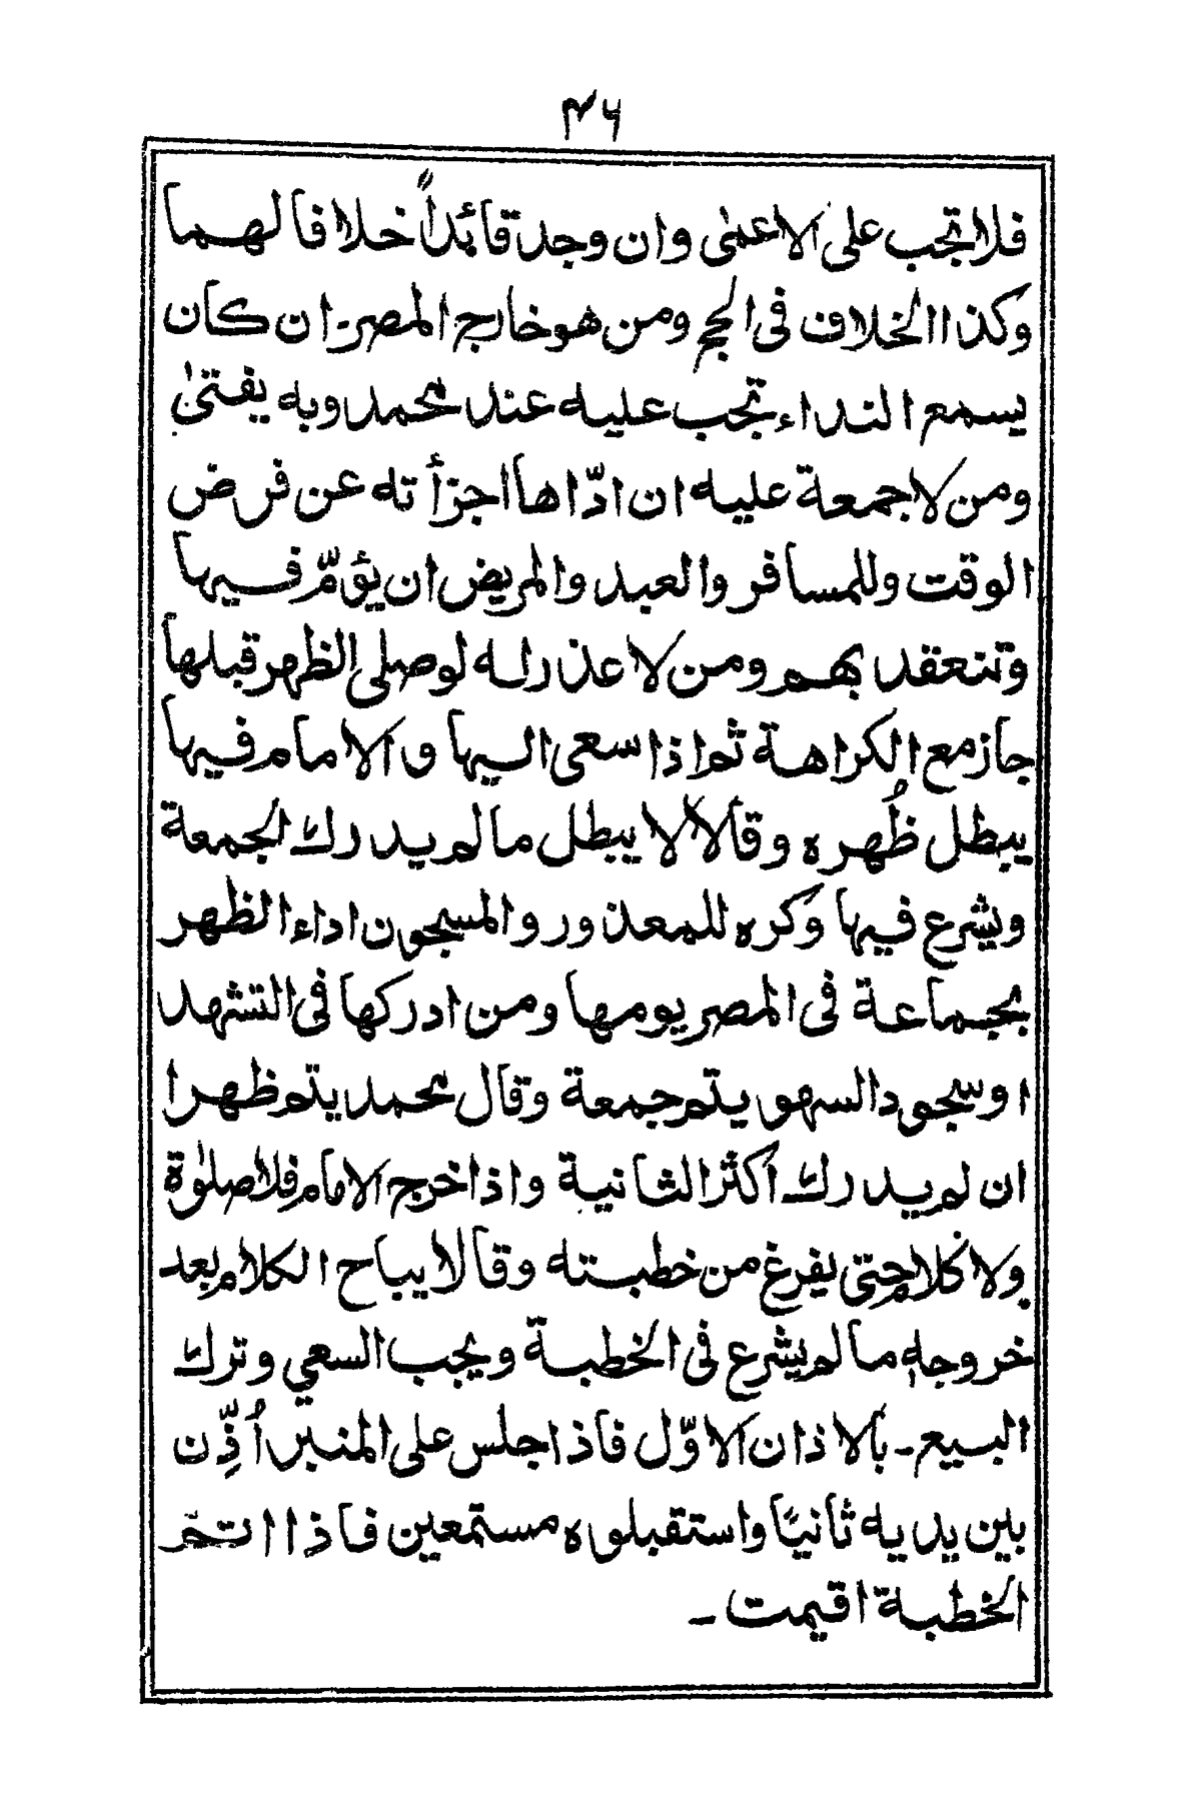 ۴۶
فلا تجب على الاعمٰى وان وجد قائداً خلافا لهما
وكذا الخلاف فى الحج ومن هو خارج المصر۔ ان كان
يسمع النداء تجب عليه عند محمد وبه يفتىٰ
ومن لا جمعة عليه ان ادّاها اجزأته عن فرض
الوقت وللمسافر والعبد والمريض ان يؤمّ فيها
وتنعقد بهم ومن لا عذر له لو صلى الظهر قبلها
جاز مع الكراهة ثم اذا سعى اليها و الامام فيها
يبطل ظُهره وقالا لا يبطل ما لم يدرك الجمعة
ويشرع فيها وكره للمعذور والمسجون اداء الظهر
بجماعة فى المصر يومها ومن ادركها فى التشهد
او سجود السهو يتم جمعة وقال محمد يتم ظهرا
ان لم يدرك اكثر الثانية واذا خرج الامام فلا صلوٰة
ولا كلام حتى يفرغ من خطبته وقالا يباح الكلام بعد
خروجه ما لم يشرع فى الخطبة ويجب السعي وترك
البيع۔ بالاذان الاوّل فاذا جلس على المنبر اُذِّن
بين يديه ثانيًا واستقبلوه مستمعين فاذا اتمّ
الخطبة اقيمت۔